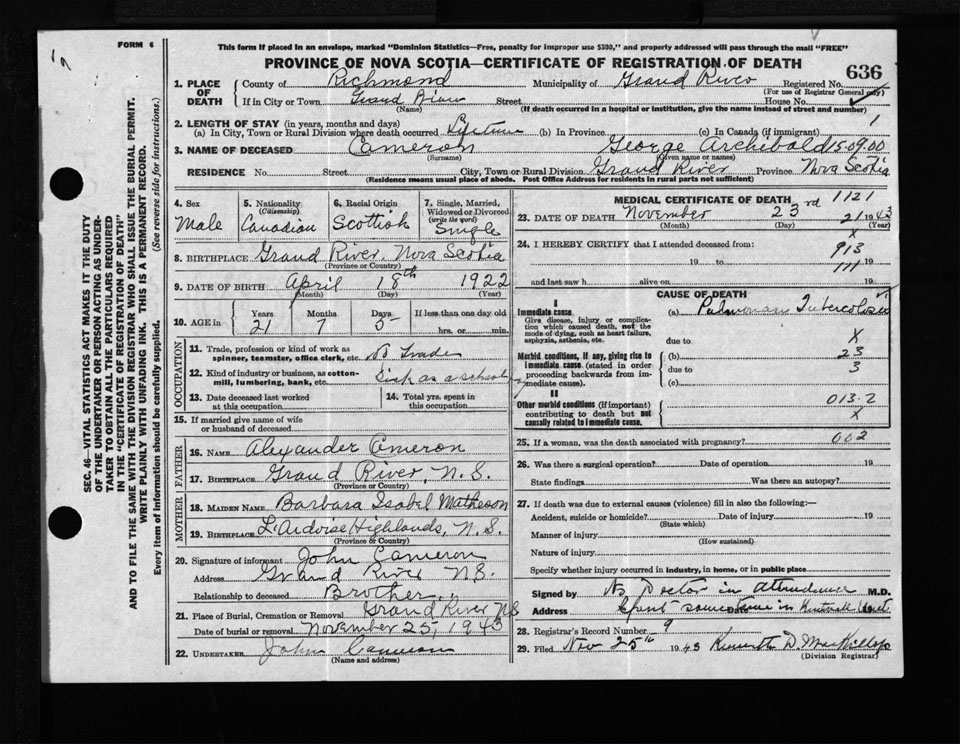 FORM 6
This form if placed in an envelope, marked "Dominion Statistics—Free, penalty for improper use $300," and properly addressed will pass through the mail "FREE"
PROVINCE OF NOVA SCOTIA—CERTIFICATE OF REGISTRATION OF DEATH
636
1. PLACE OF DEATH
County of Richmond Municipality of Grand River Registered No.
(For use of Registrar General only)
If in City or Town Grand River Street House No.
(Name) (If death occurred in a hospital or institution, give the name instead of street and number)
2. LENGTH OF STAY (in years, months and days)
(a) In City, Town or Rural Division where death occurred Lifetime (b) In Province (c) In Canada (if immigrant) 1
3. NAME OF DECEASED Cameron George Archibald 15.09.00
(Surname) (Given name or names)
RESIDENCE No. Street City, Town or Rural Division Grand River Province Nova Scotia
(Residence means usual place of abode. Post Office Address for residents in rural parts not sufficient)
4. Sex 5. Nationality (Citizenship) 6. Racial Origin 7. Single, Married, Widowed or Divorced (write the word)
Male Canadian Scottish Single
8. BIRTHPLACE Grand River, Nova Scotia
(Province or Country)
9. DATE OF BIRTH April 18th 1922
(Month) (Day) (Year)
10. AGE in Years Months Days If less than one day old
21 7 5 hrs. or min.
OCCUPATION
11. Trade, profession or kind of work as spinner, teamster, office clerk, etc. No Trade
12. Kind of industry or business, as cotton-mill, lumbering, bank, etc. Sick as a school
13. Date deceased last worked at this occupation
14. Total yrs. spent in this occupation
15. If married give name of wife or husband of deceased
FATHER
16. NAME Alexander Cameron
17. BIRTHPLACE Grand River, N.S.
(Province or Country)
MOTHER
18. MAIDEN NAME Barbara Isabel Matheson
19. BIRTHPLACE L'Ardoise Highlands, N.S.
(Province or Country)
20. Signature of informant John Cameron
Address Grand River N.S.
Relationship to deceased Brother
21. Place of Burial, Cremation or Removal Grand River NS
Date of burial or removal November 25, 1943
22. UNDERTAKER John Cameron
(Name and address)
MEDICAL CERTIFICATE OF DEATH 1121
23. DATE OF DEATH November 23rd 21 1943
(Month) (Day) (Year)
X
24. I HEREBY CERTIFY that I attended deceased from:
913
19 to 19
111
and last saw h alive on 19
CAUSE OF DEATH
I
Immediate cause. (a) Pulmonary Tuberculosis
Give disease, injury or complication which caused death, not the mode of dying, such as heart failure, asphyxia, asthenia, etc.
due to X
Morbid conditions, if any, giving rise to immediate cause. (stated in order proceeding backwards from immediate cause).
(b) 23
due to 3
(c)
II
Other morbid conditions (if important) contributing to death but not causally related to immediate cause.
013-2
X
25. If a woman, was the death associated with pregnancy? 002
26. Was there a surgical operation? Date of operation 19
State findings Was there an autopsy?
27. If death was due to external causes (violence) fill in also the following:—
Accident, suicide or homicide? Date of injury 19
(State which)
Manner of injury
(How sustained)
Nature of injury
Specify whether injury occurred in industry, in home, or in public place
Signed by No Doctor in attendance M.D.
Address Spent sometime in Kentville
28. Registrar's Record Number 9
29. Filed Nov 25th 1943 Kenneth D. MacKillop
(Division Registrar)
SEC. 46—VITAL STATISTICS ACT MAKES IT THE DUTY
OF THE UNDERTAKER OR PERSON ACTING AS UNDERTAKER TO OBTAIN ALL THE PARTICULARS REQUIRED
IN THE "CERTIFICATE OF REGISTRATION OF DEATH"
AND TO FILE THE SAME WITH THE DIVISION REGISTRAR WHO SHALL ISSUE THE BURIAL PERMIT.
WRITE PLAINLY WITH UNFADING INK. THIS IS A PERMANENT RECORD.
Every item of information should be carefully supplied. (See reverse side for instructions.)